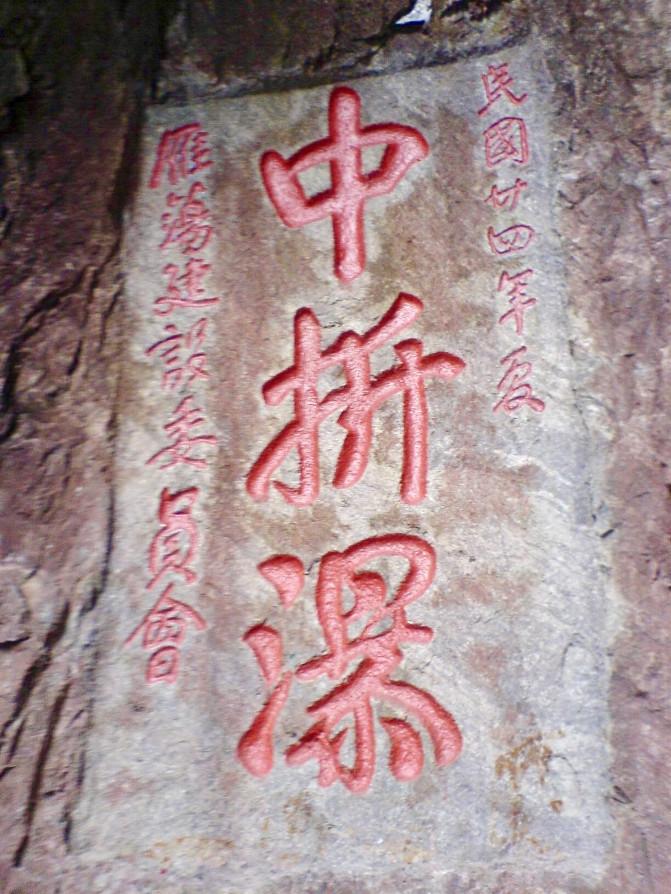 民國廿四年夏
中折瀑
雁蕩建設委員會